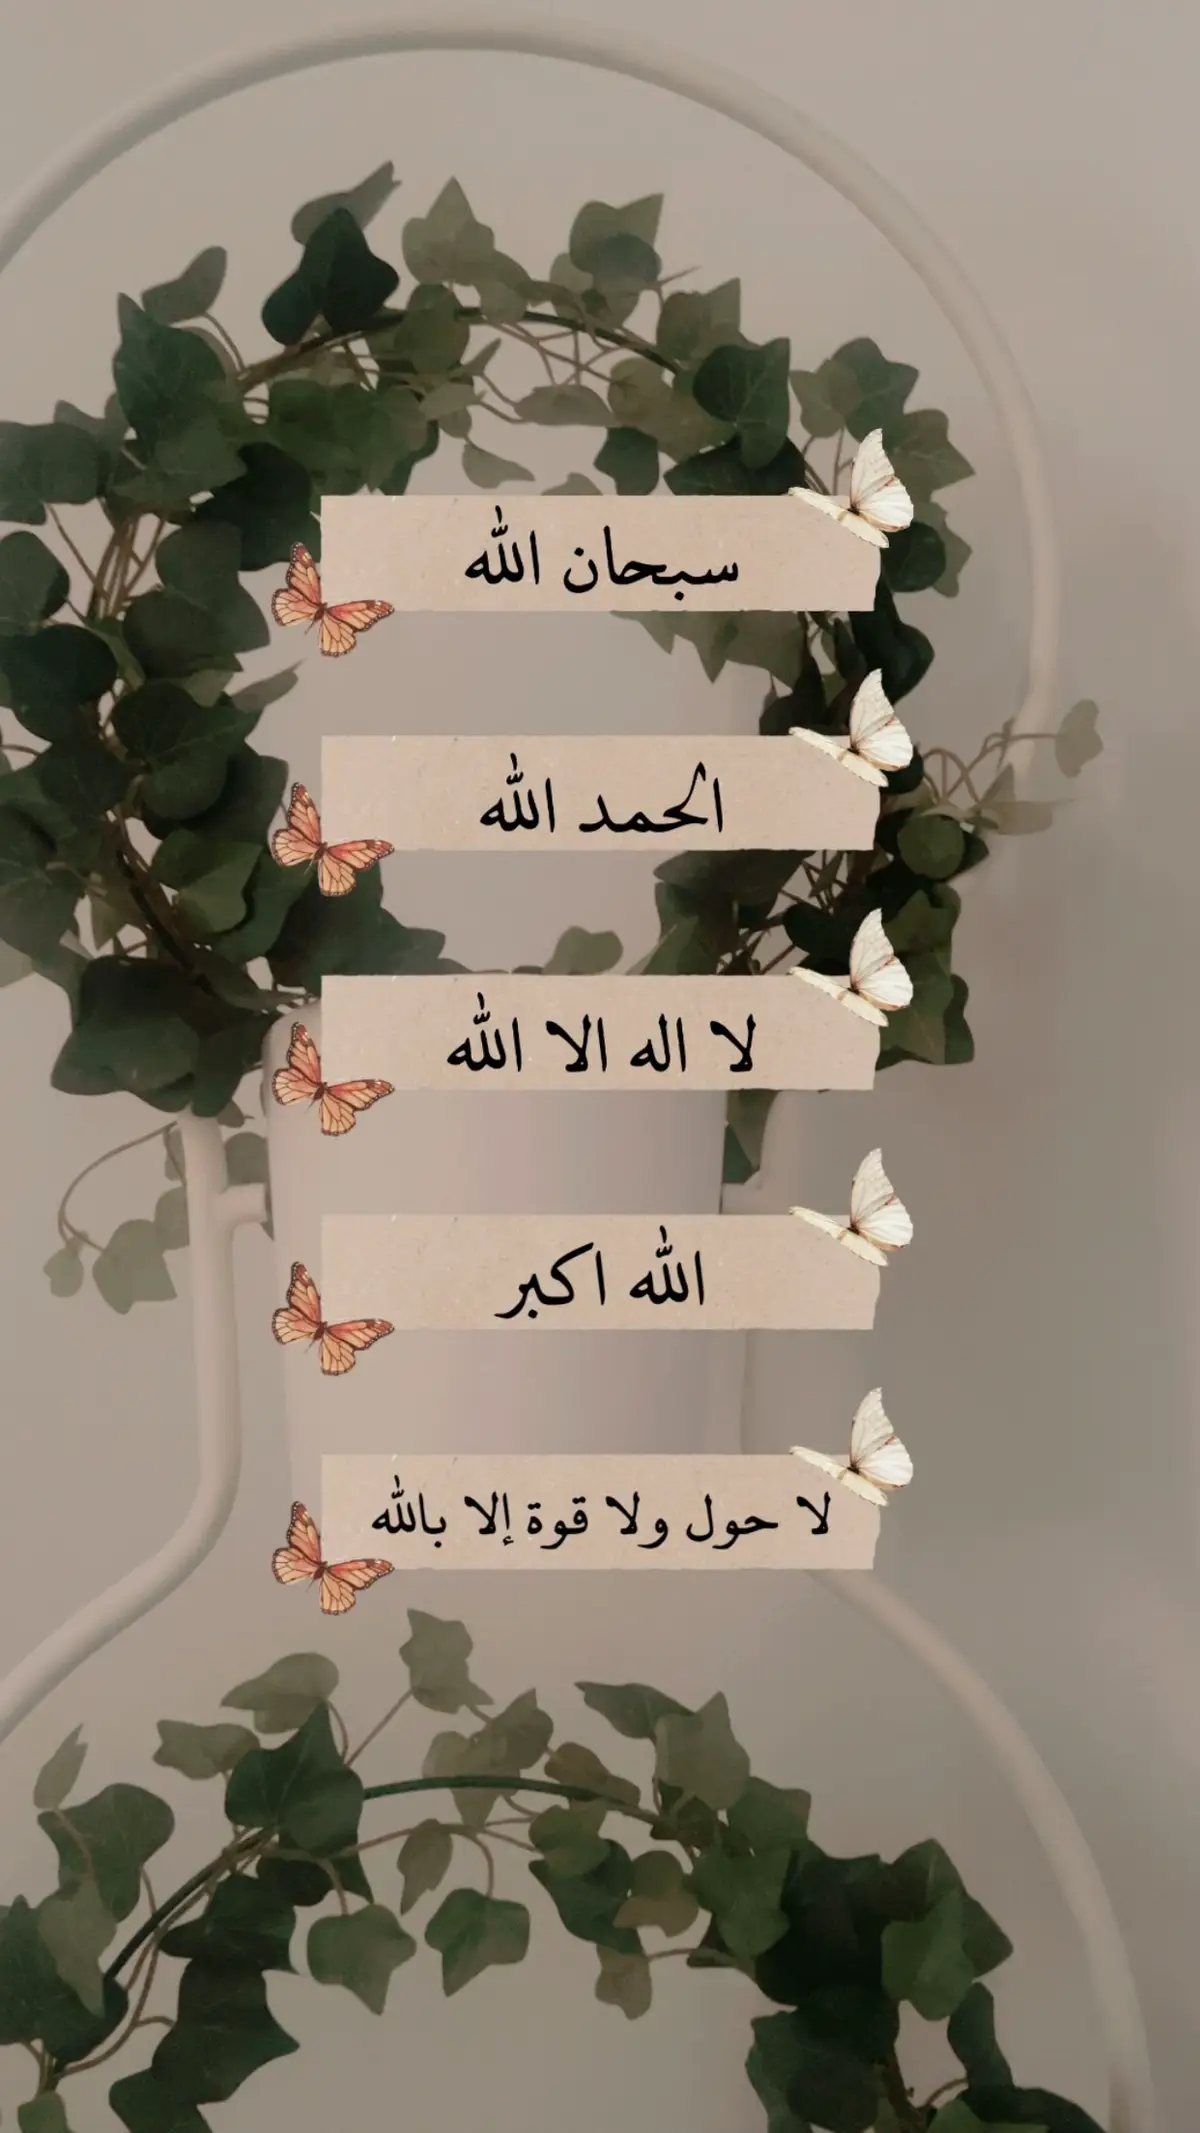 سبحان الله
الحمد الله
لا اله الا الله
الله اكبر
لا حول ولا قوة إلا بالله